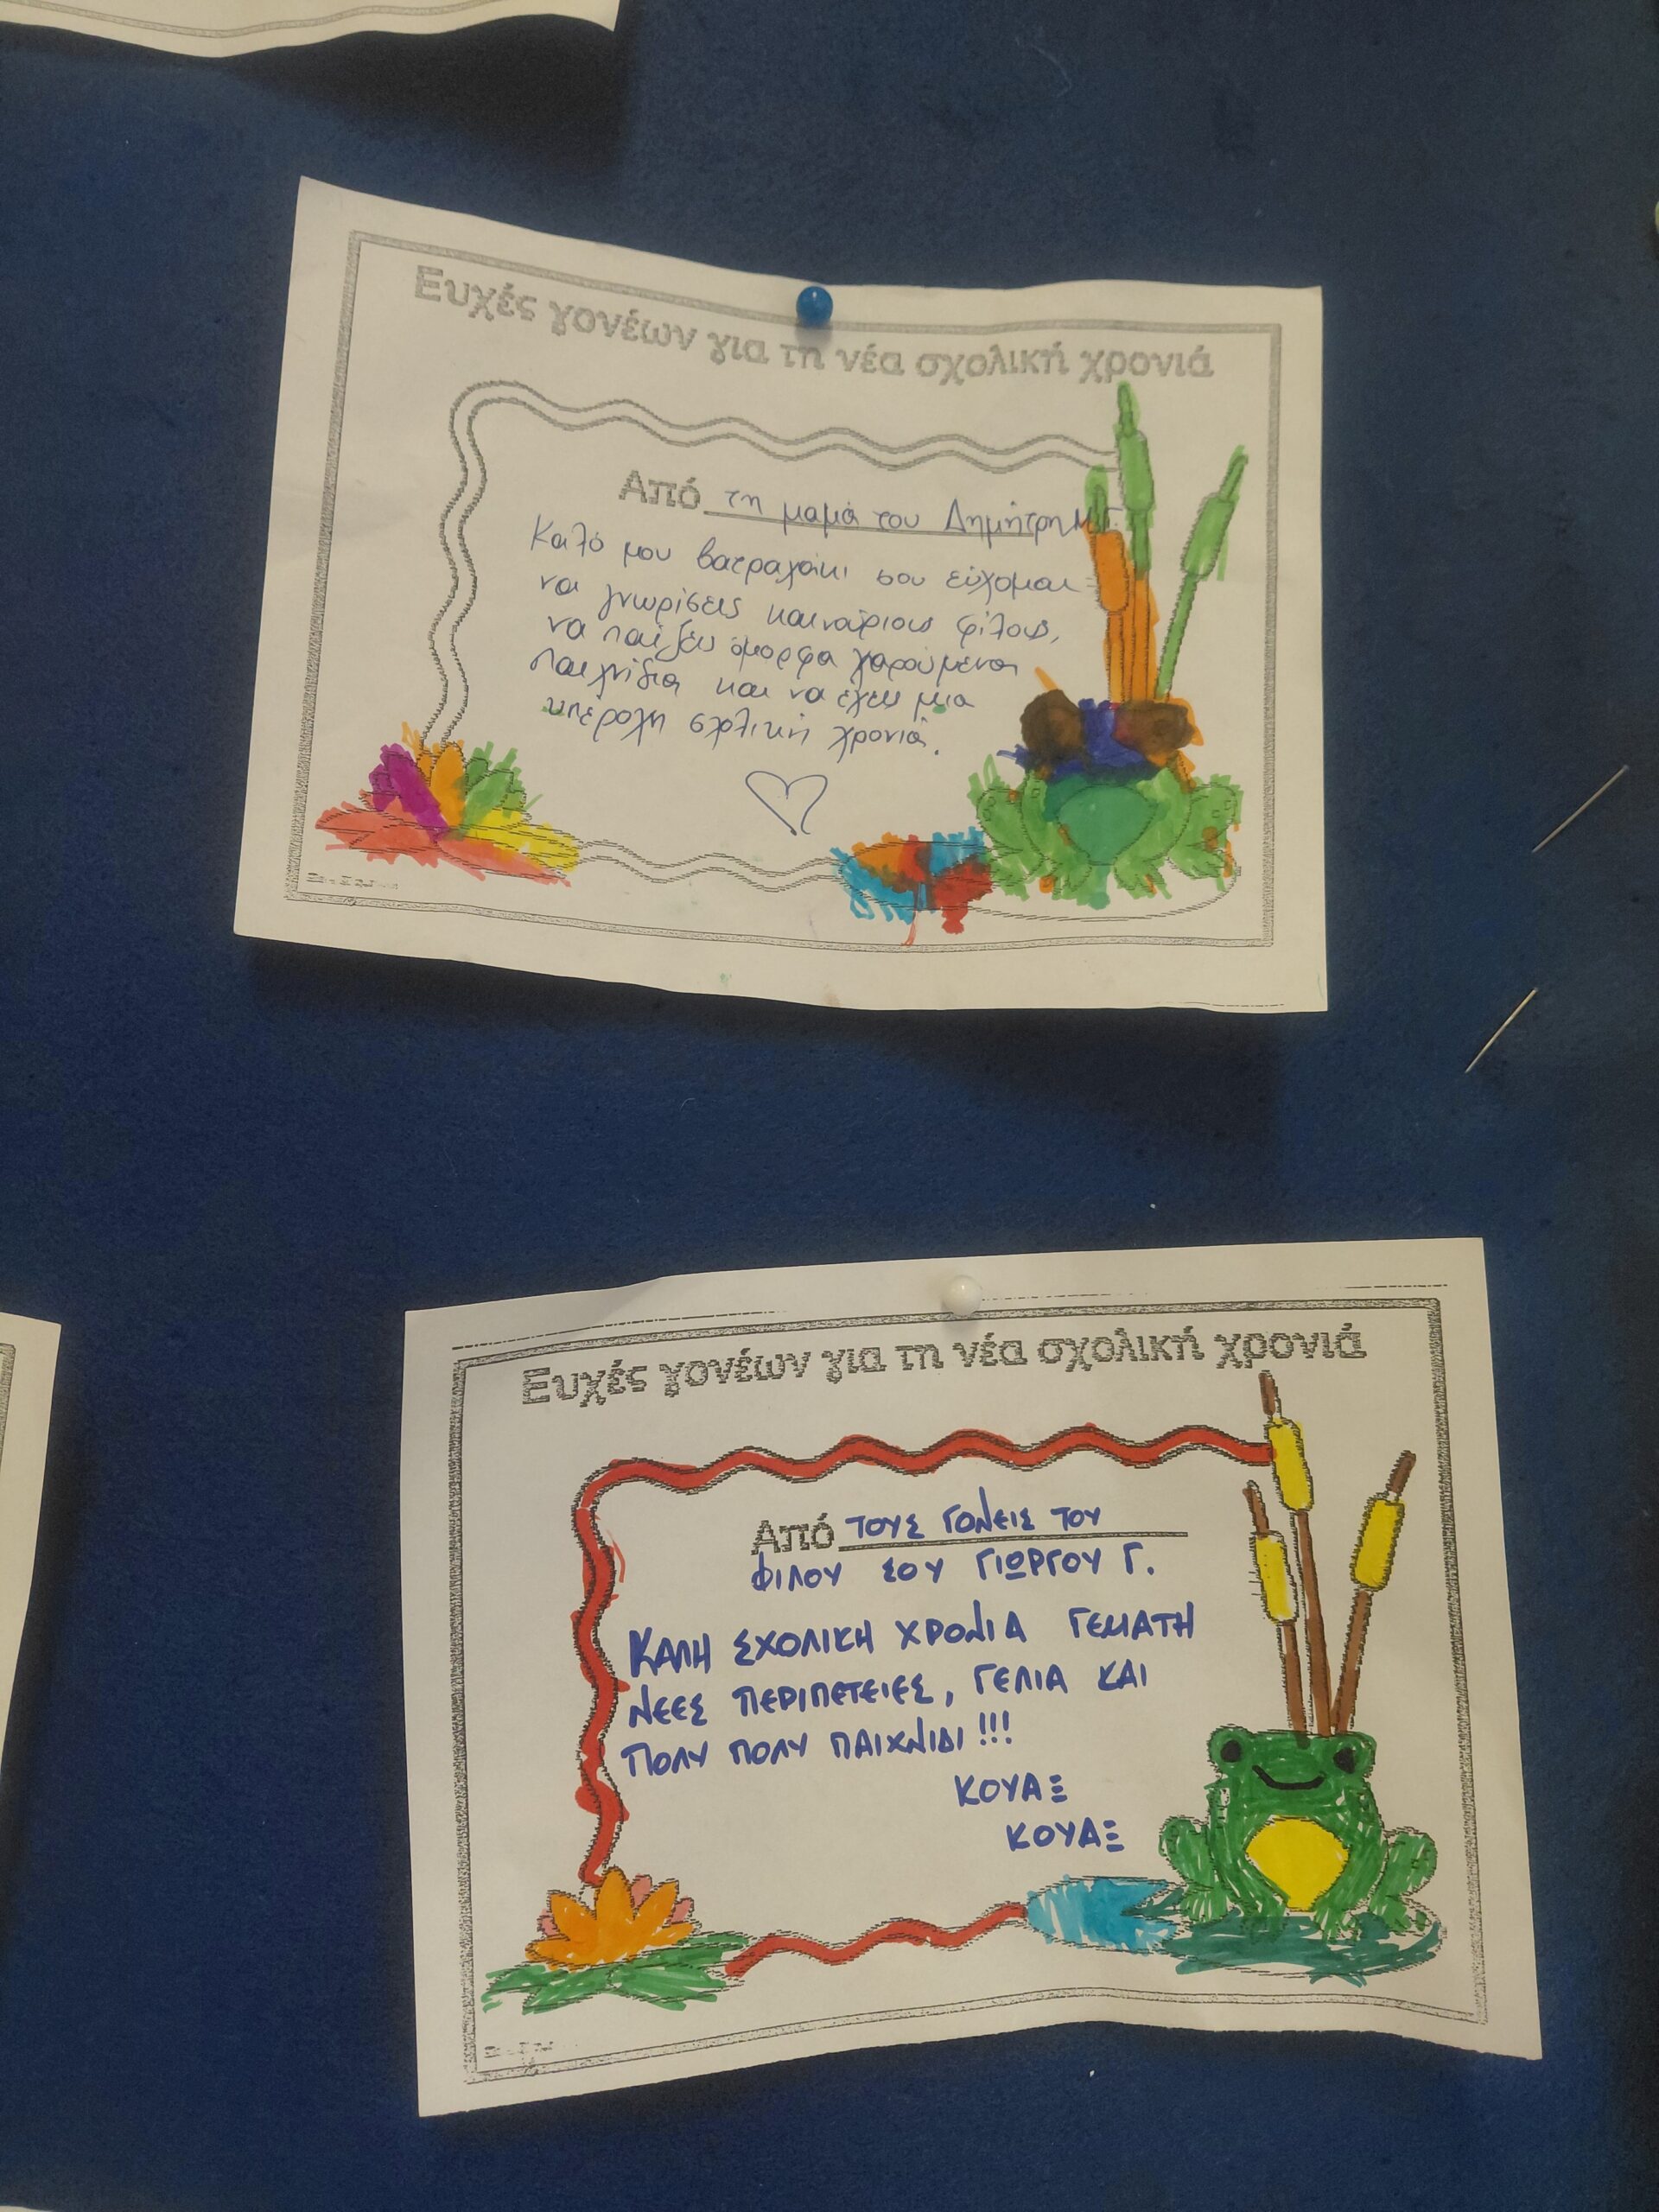 Ευχές γονέων για τη νέα σχολική χρονιά
Από τη μαμά του Δημήτρη Μ.Γ.
Καλό μου βατραχάκι σου εύχομαι
να γνωρίσεις καινούριους φίλους,
να παίξεις όμορφα χαρούμενα
παιχνίδια και να έχεις μια
υπέροχη σχολική χρονιά.
Ευχές γονέων για τη νέα σχολική χρονιά
Από ΤΟΥΣ ΓΟΝΕΙΣ ΤΟΥ
ΦΙΛΟΥ ΣΟΥ ΓΙΩΡΓΟΥ Γ.
ΚΑΛΗ ΣΧΟΛΙΚΗ ΧΡΟΝΙΑ ΓΕΜΑΤΗ
ΝΕΕΣ ΠΕΡΙΠΕΤΕΙΕΣ, ΓΕΛΙΑ ΚΑΙ
ΠΟΛΥ ΠΟΛΥ ΠΑΙΧΝΙΔΙ!!!
ΚΟΥΑΞ
ΚΟΥΑΞ